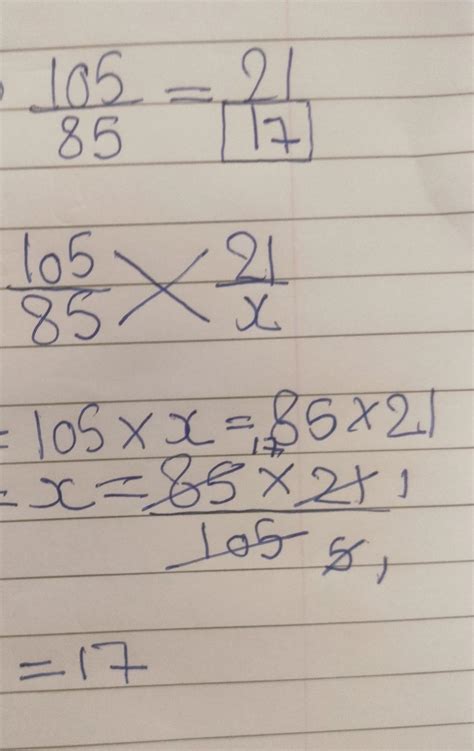 105/85 = 21/17
105/85 × 21/x
= 105 × x = 85 × 21
= x = 85 × 21 / 105
17 1
5 1
= 17